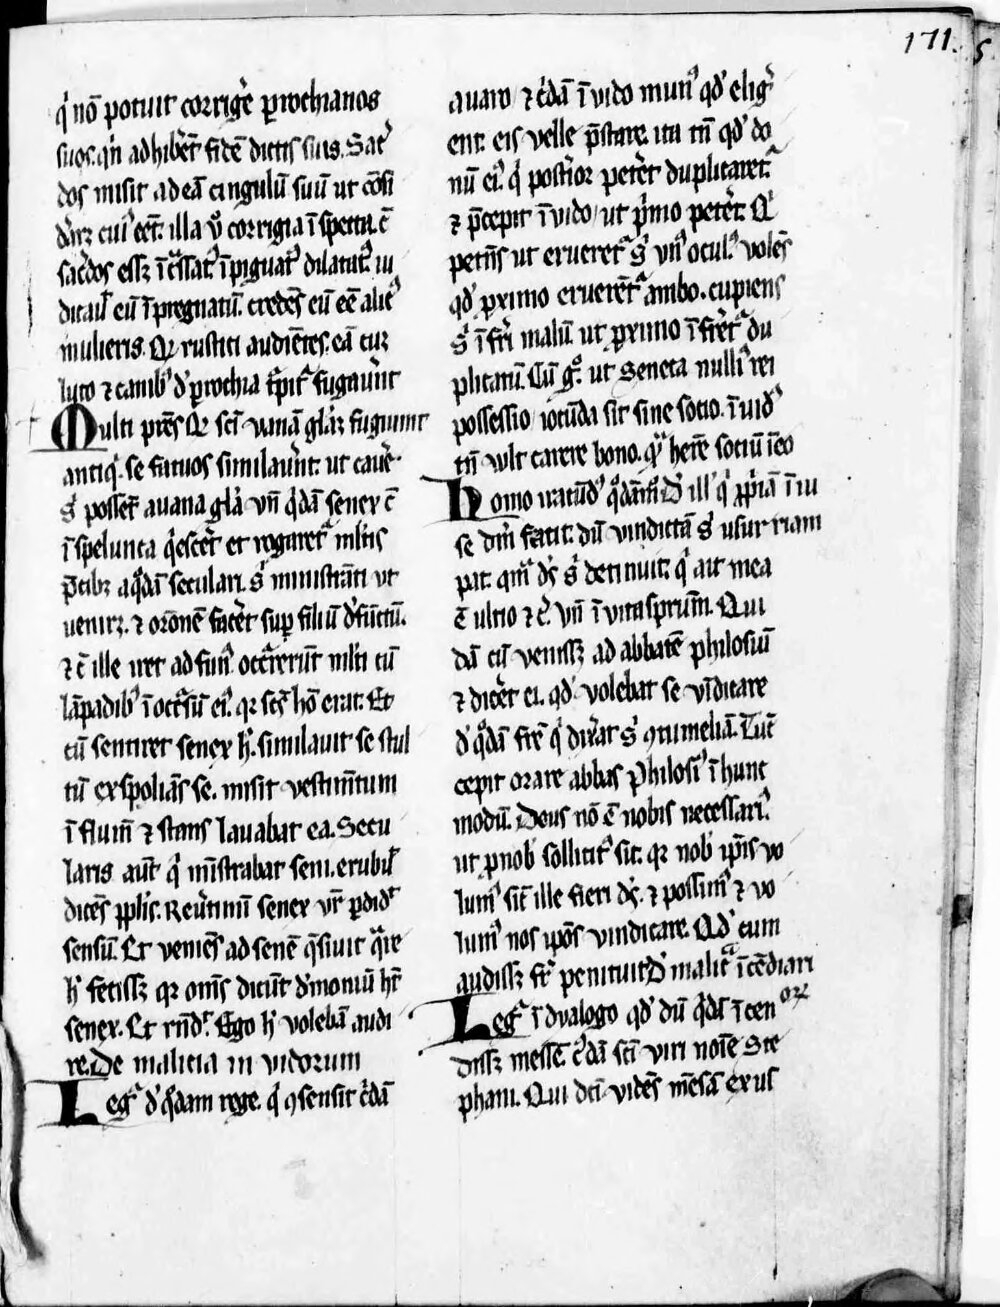 171.
q' nō potuit corrig'e p̱rochianos
suos. qn̄ adhib'et fidē dictis suis. Sac'
dos misit ad eā cingulū suū ut cōsi
illa v̊ corrigia īspecta. c̄
sac'dos essꝫ īc̄ssat᷒ īp̱iguat᷒ dilatat᷒ iu
dicauit eū īpregnatū. credēs eū eē alic᷒
mulieris. Qꝛ rustici audiētes. eā cuꝫ
luto ⁊ canib᷒ d' p̱rochia fugau'nt
Multi pr̄es Qꝛ sc̄i vanā gl'aꝫ fugiunt
antiq'. se fatuos similau'nt. ut cau'e
s' possēt a uana gl'a vn̄ q'dā senex c̄
ī spelunca q'esc'et et rogaret᷒ ml'tis
p̄cibꝫ a q°dā seculari. s' ministrāti ut
uenirꝫ. ⁊ or̄onē fac'et sup̱ filiū d'fūctū.
⁊ c̄ ille iret ad fun᷒ occ'rerūt ml'ti cū
lāpadib᷒ ī occ'sū ei᷒. qꝛ sc̄s hō erat. Et
cū sentiret senex h'. similauit se stul
tū exspoliās se. misit vestim̄tum
ī flum̄ ⁊ stans lauabat ea. Secu
laris aut̄ q' mīstrabat seni. erubuit
dicēs pp̱lis. Reu'timi senex vr̄ p̱did'
sensū. Et veniēs ad senē q̄siuit q̄re
h' fecissꝫ qꝛ om̄s dicūt d'moniū h't
senex. Et rn̄d'. Ego h' volebā audi
re. De malicia in vidorum
Leg᷒ d' q°dam rege. q' ꝯsensit c'dā
auaro ⁊ c'dā īuido mun᷒ qd' elig'
ent. eis velle p̄stare. ita tn̄ qd' do
nū ei᷒ q' post'ior pet'et duplicaret᷒
⁊ p̄cepit īuido ut p'mo pet'et. Q'
petn̄s ut erueret᷒ s' vn᷒ ocul᷒ volēs
qd' p̱ximo eruerēt᷒ ambo. cupiens
s' īfri malū ut p̱ximo īfr̄et᷒ du
plicatū. Cū g°. ut Seneca nulli᷒ rei
possessio iocūda sit sine socio. īuid᷒
tn̄ vult carere bono. q' her̄e sociū ī eo
se dn̄i facit. dū vindictā s' usur
pat. qm̄ d's s' detinuit. q' ait mea
ē ultio ⁊ c'. vn̄ ī vitaspr̄um. Qui
dā cū venissꝫ ad abbatē philosiū
⁊ dic'et ei. qd' volebat se vīdicare
d' q°dā fr̄e q' dix'at s' ꝯtumeliā. Tūc
cepit orare abbas Philosi᷒ ī hunc
modū. Deus nō ē nobis necessari᷒.
ut p̱ nob' sollicit᷒ sit. qꝛ nob' ip̄is vo
lum᷒ sic̄ ille fieri d's. ⁊ possim᷒ ⁊ vo
lum᷒ nos ip̄os vindicare. Qd' cum
audissꝫ fr̄ penituit D' malic' īcēdiari
orꝝ
Leg᷒ ī dyalogo qd' dū q'dā īcen
dissꝫ messē c'dā sc̄i viri noīe Ste
phani. Qui dc̄i vidēs mēsā exus